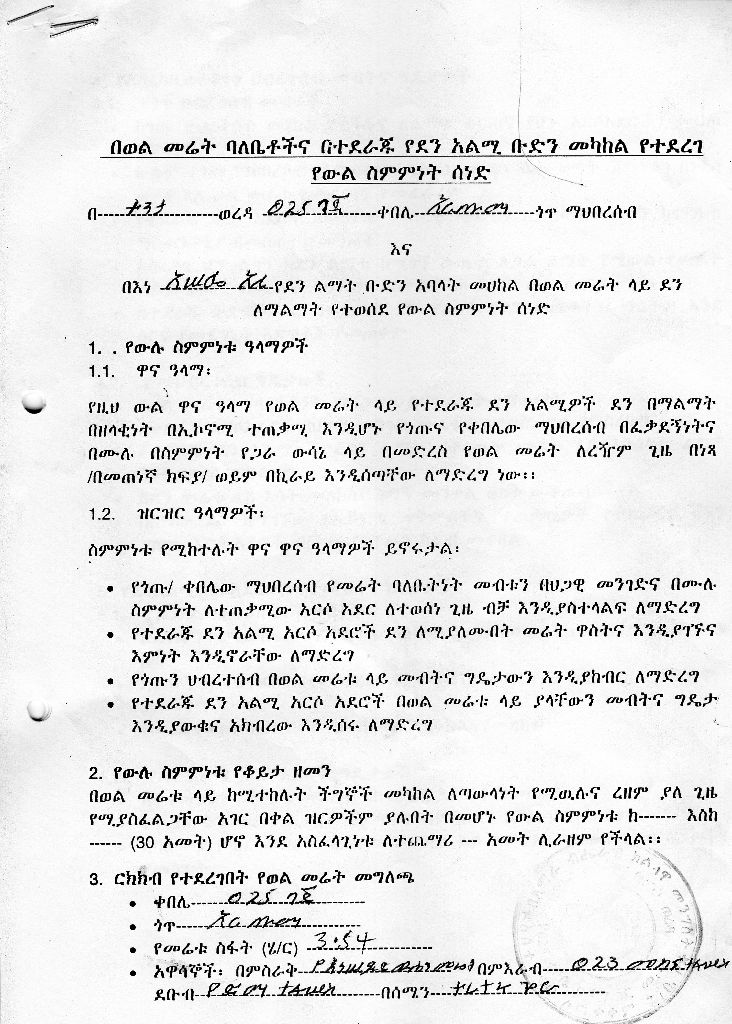 በወል መሬት ባለቤቶችና በተደራጁ የደን አልሚ ቡድን መካከል የተደረገ
የውል ስምምነት ሰነድ
በ---------ወረዳ 025 ቀበሌ ጎጥ ማህበረሰብ
እና
በእነ የደን ልማት ቡድን አባላት መሀከል በወል መሬት ላይ ደን
ለማልማት የተወሰደ የውል ስምምነት ሰነድ
1. . የውሉ ስምምነቱ ዓላማዎች
1.1. ዋና ዓላማ፡
የዚህ ውል ዋና ዓላማ የወል መሬት ላይ የተደራጁ ደን አልሚዎች ደን በማልማት
በዘላቂነት በኢኮኖሚ ተጠቃሚ እንዲሆኑ የጎጡና የቀበሌው ማህበረሰብ በፈቃደኝነትና
በሙሉ በስምምነት የጋራ ውሳኔ ላይ በመድረስ የወል መሬት ለረዥም ጊዜ በነጻ
/በመጠነኛ ክፍያ/ ወይም በኪራይ እንዲሰጣቸው ለማድረግ ነው፡፡
1.2. ዝርዝር ዓላማዎች፡
ስምምነቱ የሚከተሉት ዋና ዋና ዓላማዎች ይኖሩታል፡
• የጎጡ/ ቀበሌው ማህበረሰብ የመሬት ባለቤትነት መብቱን በህጋዊ መንገድና በሙሉ
ስምምነት ለተጠቃሚው አርሶ አደር ለተወሰነ ጊዜ ብቻ እንዲያስተላልፍ ለማድረግ
• የተደራጁ ደን አልሚ አርሶ አደሮች ደን ለሚያለሙበት መሬት ዋስትና እንዲያገኙና
እምነት እንዲኖራቸው ለማድረግ
• የጎጡን ህብረተሰብ በወል መሬቱ ላይ መብትና ግዴታውን እንዲያከብር ለማድረግ
• የተደራጁ ደን አልሚ አርሶ አደሮች በወል መሬቱ ላይ ያላቸውን መብትና ግዴታ
እንዲያውቁና አክብረው እንዲሰሩ ለማድረግ
2. የውሉ ስምምነቱ የቆይታ ዘመን
በወል መሬቱ ላይ ከሚተከሉት ችግኞች መካከል ለጣውላነት የሚዉሉና ረዘም ያለ ጊዜ
የሚያስፈልጋቸው አገር በቀል ዝርዎችም ያሉበት በመሆኑ የውል ስምምነቱ ከ------- እስከ
------ (30 አመት) ሆኖ እንደ አስፈላጊነቱ ለተጨማሪ --- አመት ሊራዘም የችላል፡፡
3. ርክክብ የተደረገበት የወል መሬት መግለጫ
• ቀበሌ 025
• ጎጥ
• የመሬቱ ስፋት (ሄ/ር) 3.54
• አዋሳኞች፡ በምስራቅ በምእራብ 023
ደቡብ በሰሜን